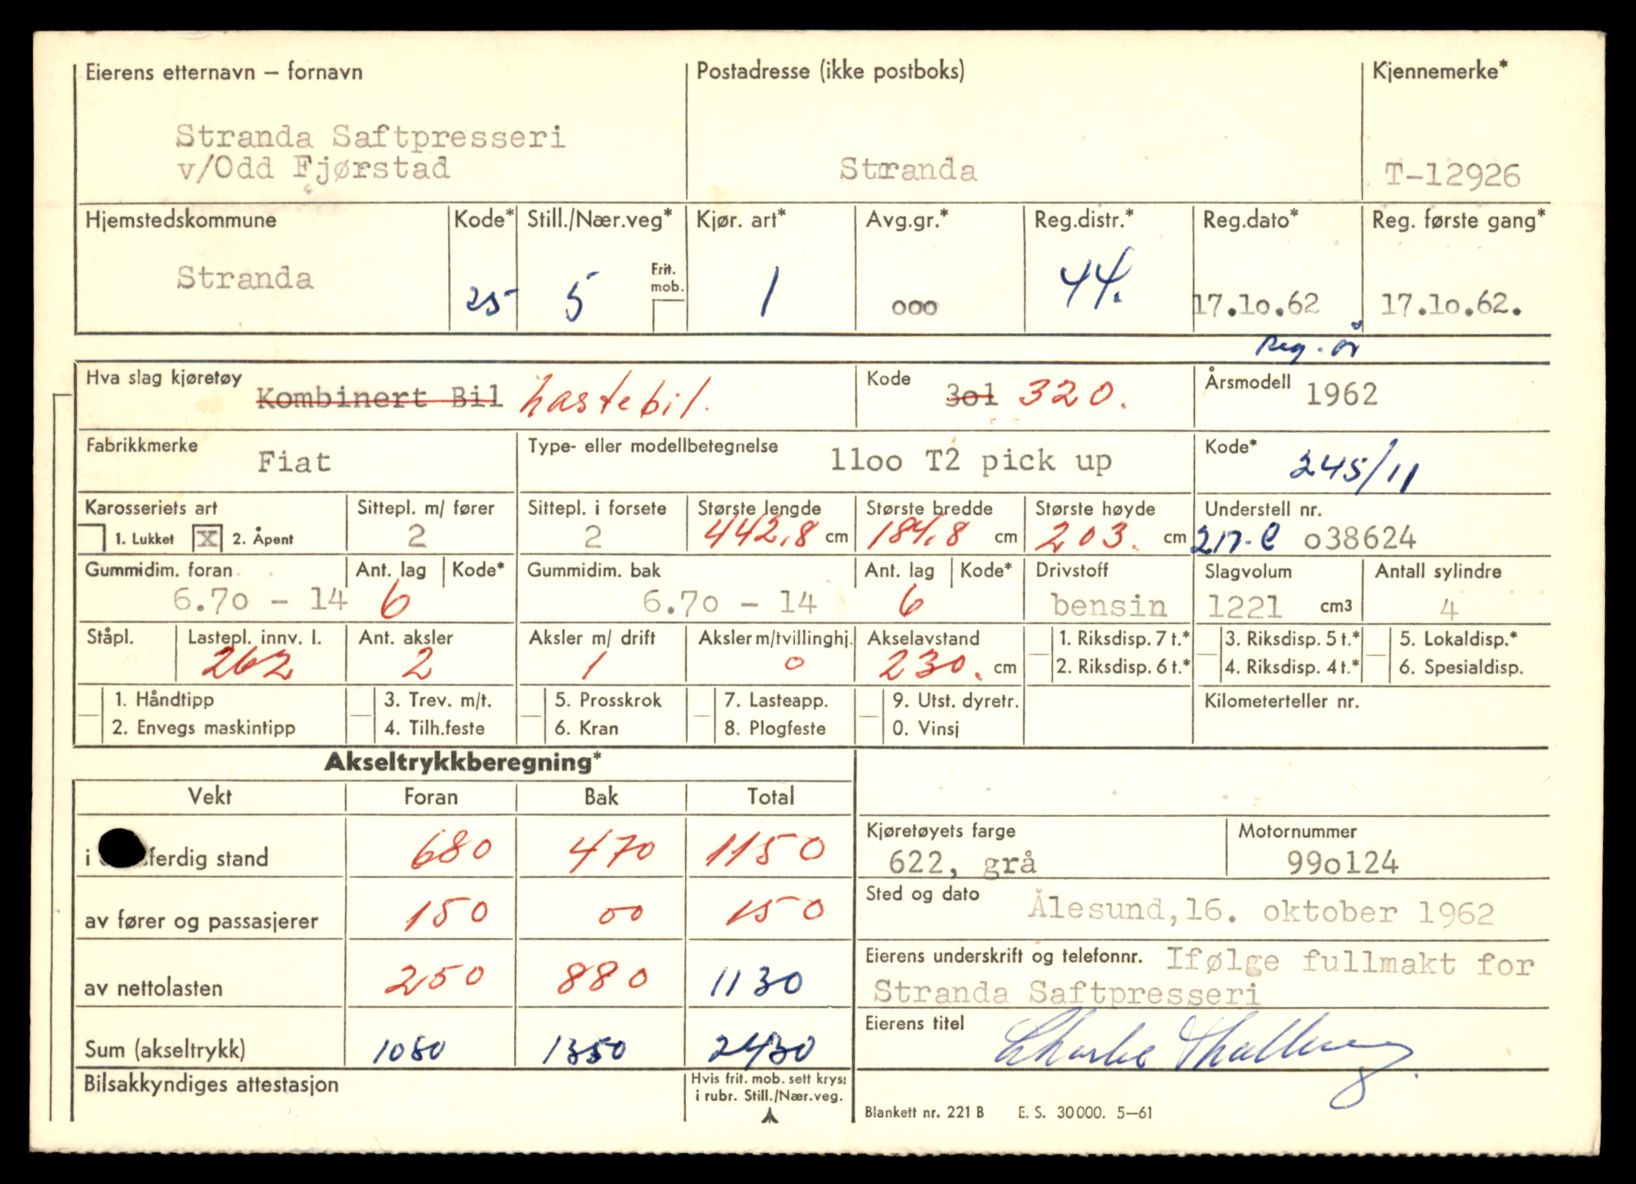 Eierens etternavn – fornavn
Postadresse (ikke postboks)
Kjennemerke*
Stranda Saftpresseri
v/Odd Fjørstad
Stranda
T-12926
Hjemstedskommune Kode* Still./Nær.veg* Kjør. art* Avg.gr.* Reg.distr.* Reg.dato* Reg. første gang*
Stranda 25 5 Frit. mob. 1 ooo 44. 17.1o.62 17.1o.62.
Reg. år
Hva slag kjøretøy Kombinert Bil Lastebil. Kode 3o1 320. Årsmodell 1962
Fabrikkmerke Fiat Type- eller modellbetegnelse 11oo T2 pick up Kode* 245/11
Karosseriets art Sittepl. m/ fører Sittepl. i forsete Største lengde Største bredde Største høyde Understell nr.
1. Lukket X 2. Åpent 2 2 442,8 cm 184,8 cm 203. cm 217.C o38624
Gummidim. foran Ant. lag Kode* Gummidim. bak Ant. lag Kode* Drivstoff Slagvolum Antall sylindre
6.7o - 14 6 6.7o - 14 6 bensin 1221 cm3 4
Ståpl. Lastepl. innv. l. Ant. aksler Aksler m/ drift Aksler m/tvillinghj. Akselavstand 1. Riksdisp. 7 t.* 3. Riksdisp. 5 t.* 5. Lokaldisp.*
262 2 1 0 230. cm 2. Riksdisp. 6 t.* 4. Riksdisp. 4 t.* 6. Spesialdisp.
1. Håndtipp 3. Trev. m/t. 5. Prosskrok 7. Lasteapp. 9. Utst. dyretr. Kilometerteller nr.
2. Envegs maskintipp 4. Tilh.feste 6. Kran 8. Plogfeste 0. Vinsj
Akseltrykkberegning*
Vekt Foran Bak Total
i ferdig stand 680 470 1150
av fører og passasjerer 150 00 150
av nettolasten 250 880 1130
Sum (akseltrykk) 1080 1350 2430
Bilsakkyndiges attestasjon
Hvis frit. mob. sett kryss
i rubr. Still./Nær.veg.
Kjøretøyets farge Motornummer
622, grå 99o124
Sted og dato Ålesund,16. oktober 1962
Eierens underskrift og telefonnr. Ifølge fullmakt for
Stranda Saftpresseri
Eierens titel
Blankett nr. 221 B E. S. 30000. 5–61